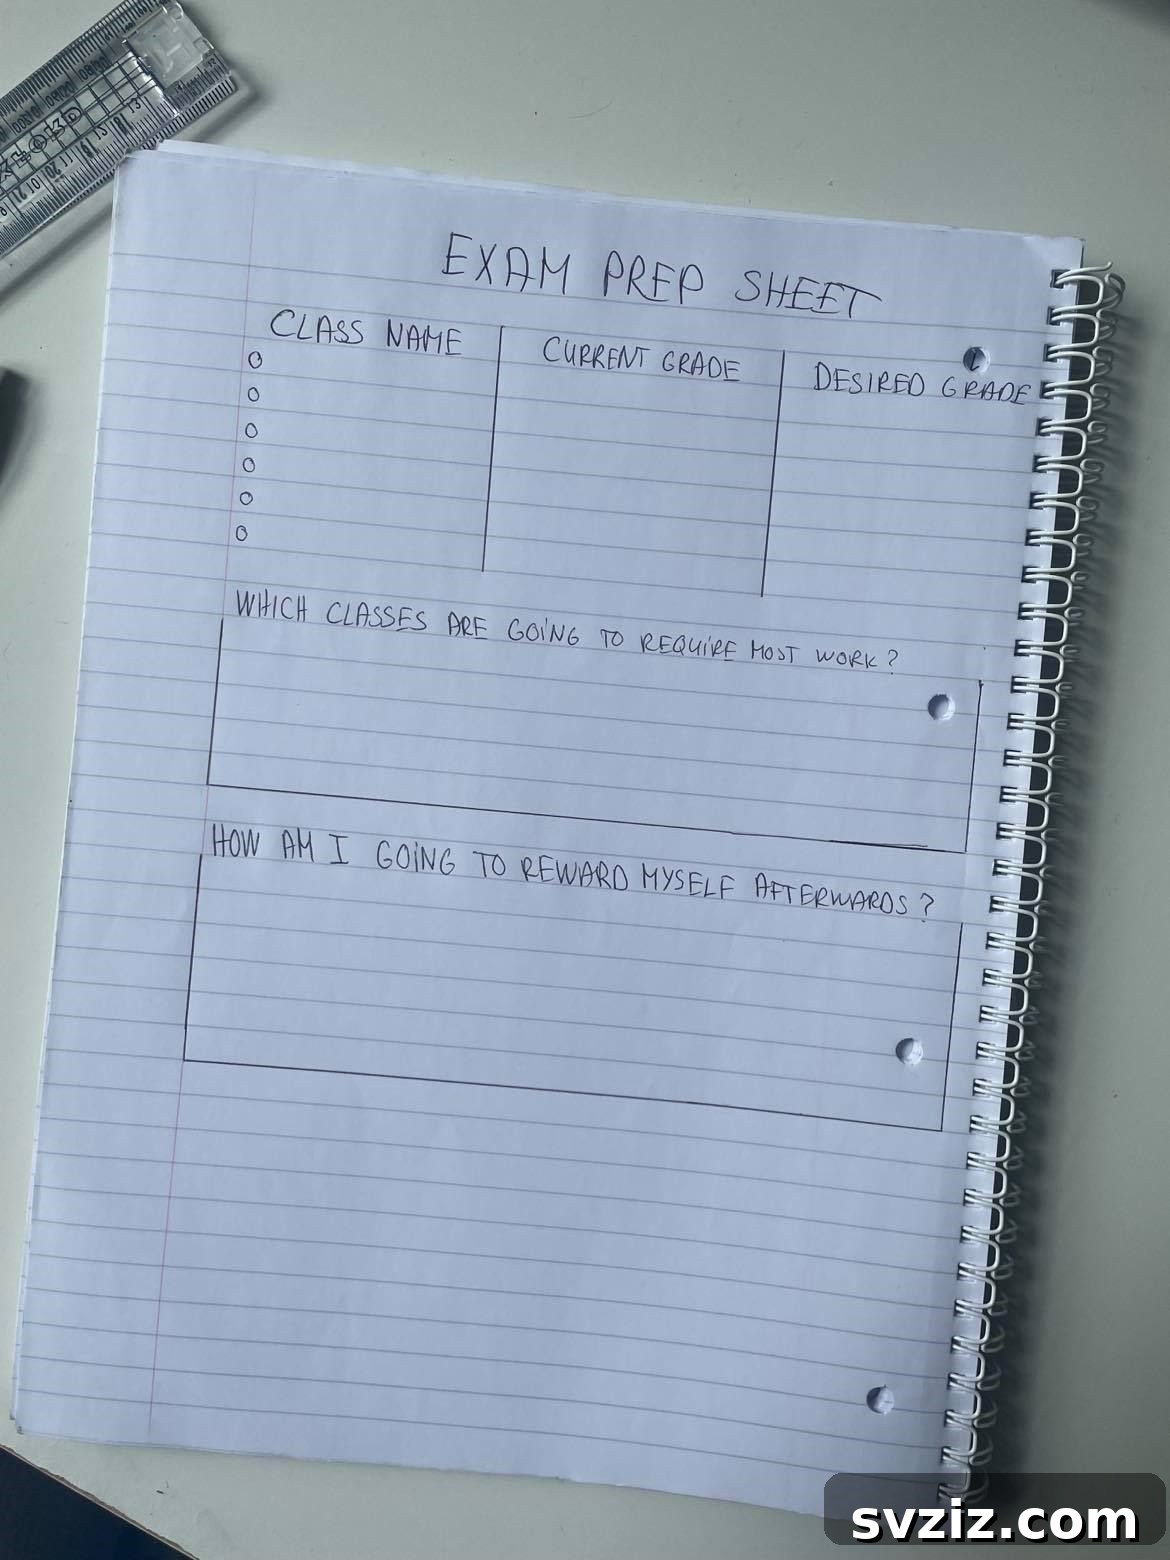 EXAM PREP SHEET
CLASS NAME
CURRENT GRADE
DESIRED GRADE
WHICH CLASSES ARE GOING TO REQUIRE MOST WORK?
HOW AM I GOING TO REWARD MYSELF AFTERWARDS?
svziz.com